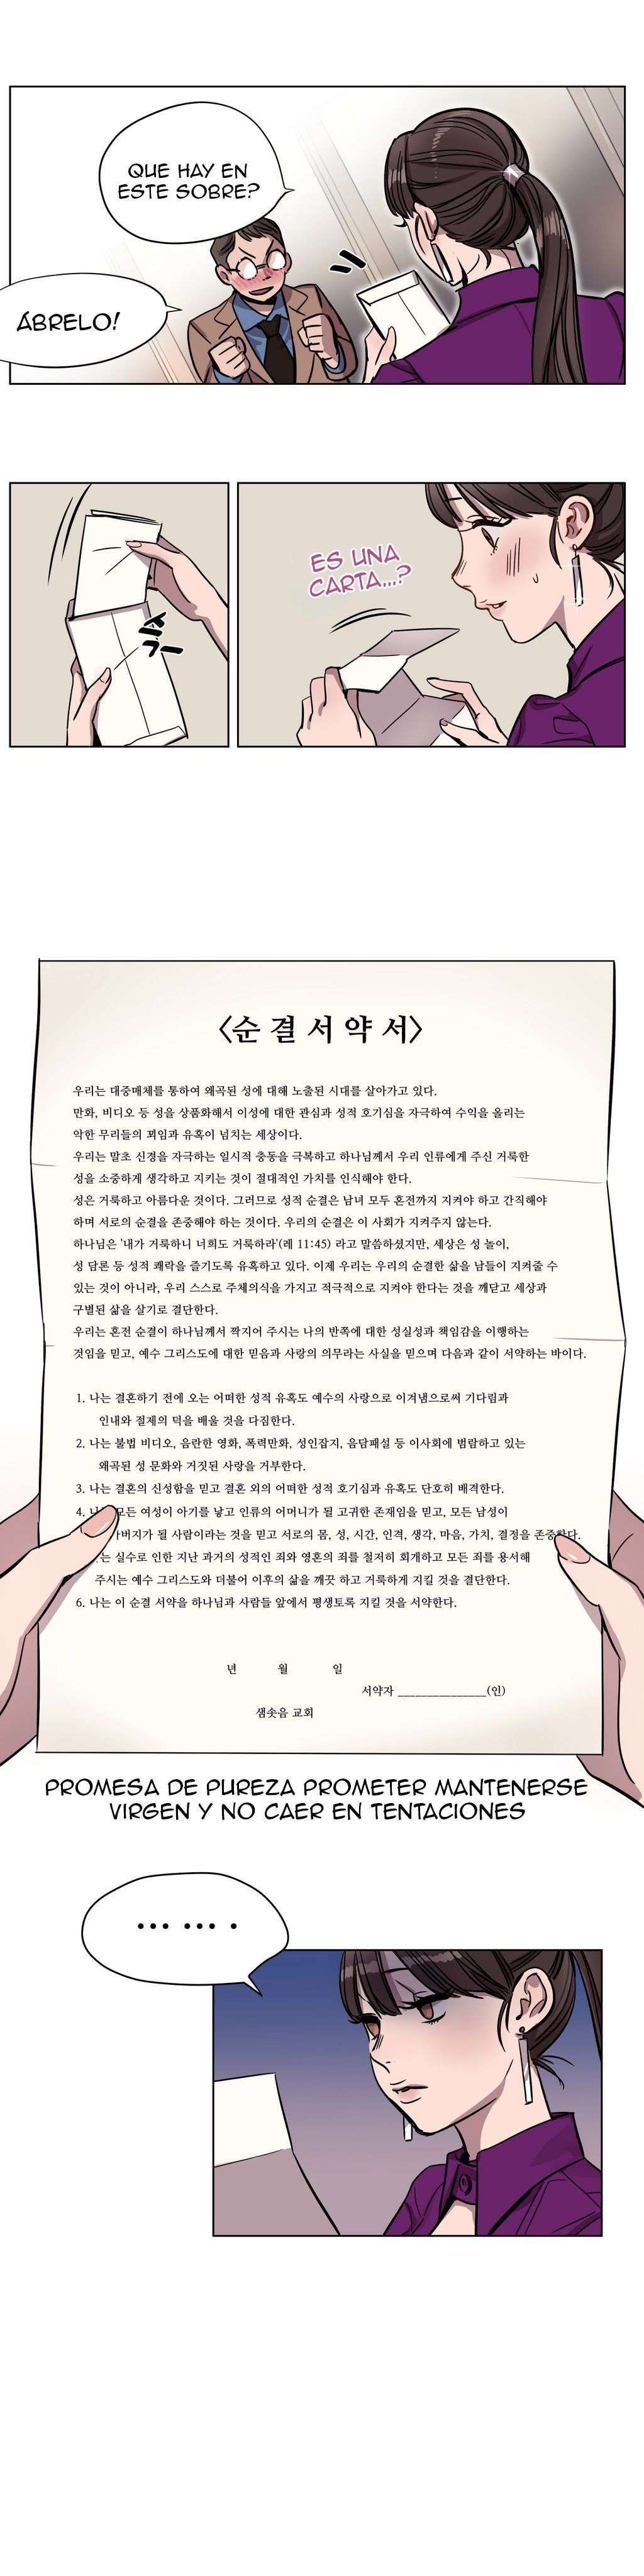 QUE HAY EN
ESTE SOBRE?
ÁBRELO!
ES UNA
CARTA...?
<순 결 서 약 서>
우리는 대중매체를 통하여 왜곡된 성에 대해 노출된 시대를 살아가고 있다.
만화, 비디오 등 성을 상품화해서 이성에 대한 관심과 성적 호기심을 자극하여 수익을 올리는
악한 무리들의 꾀임과 유혹이 넘치는 세상이다.
우리는 말초 신경을 자극하는 일시적 충동을 극복하고 하나님께서 우리 인류에게 주신 거룩한
성을 소중하게 생각하고 지키는 것이 절대적인 가치를 인식해야 한다.
성은 거룩하고 아름다운 것이다. 그러므로 성적 순결은 남녀 모두 혼전까지 지켜야 하고 간직해야
하며 서로의 순결을 존중해야 하는 것이다. 우리의 순결은 이 사회가 지켜주지 않는다.
하나님은 '내가 거룩하니 너희도 거룩하라'(레 11:45) 라고 말씀하셨지만, 세상은 성 놀이,
성 담론 등 성적 쾌락을 즐기도록 유혹하고 있다. 이제 우리는 우리의 순결한 삶을 남들이 지켜줄 수
있는 것이 아니라, 우리 스스로 주체의식을 가지고 적극적으로 지켜야 한다는 것을 깨닫고 세상과
구별된 삶을 살기로 결단한다.
우리는 혼전 순결이 하나님께서 짝지어 주시는 나의 반쪽에 대한 성실성과 책임감을 이행하는
것임을 믿고, 예수 그리스도에 대한 믿음과 사랑의 의무라는 사실을 믿으며 다음과 같이 서약하는 바이다.
1. 나는 결혼하기 전에 오는 어떠한 성적 유혹도 예수의 사랑으로 이겨냄으로써 기다림과
인내와 절제의 덕을 배울 것을 다짐한다.
2. 나는 불법 비디오, 음란한 영화, 폭력만화, 성인잡지, 음담패설 등 이사회에 범람하고 있는
왜곡된 성 문화와 거짓된 사랑을 거부한다.
3. 나는 결혼의 신성함을 믿고 결혼 외의 어떠한 성적 호기심과 유혹도 단호히 배격한다.
4. 모든 여성이 아기를 낳고 인류의 어머니가 될 고귀한 존재임을 믿고, 모든 남성이
아버지가 될 사람이라는 것을 믿고 서로의 몸, 성, 시간, 인격, 생각, 마음, 가치, 결정을 존중한다.
는 실수로 인한 지난 과거의 성적인 죄와 영혼의 죄를 철저히 회개하고 모든 죄를 용서해
주시는 예수 그리스도와 더불어 이후의 삶을 깨끗 하고 거룩하게 지킬 것을 결단한다.
6. 나는 이 순결 서약을 하나님과 사람들 앞에서 평생토록 지킬 것을 서약한다.
년 월 일
서약자 _______________(인)
샘솟음 교회
PROMESA DE PUREZA PROMETER MANTENERSE
VIRGEN Y NO CAER EN TENTACIONES
... ... .